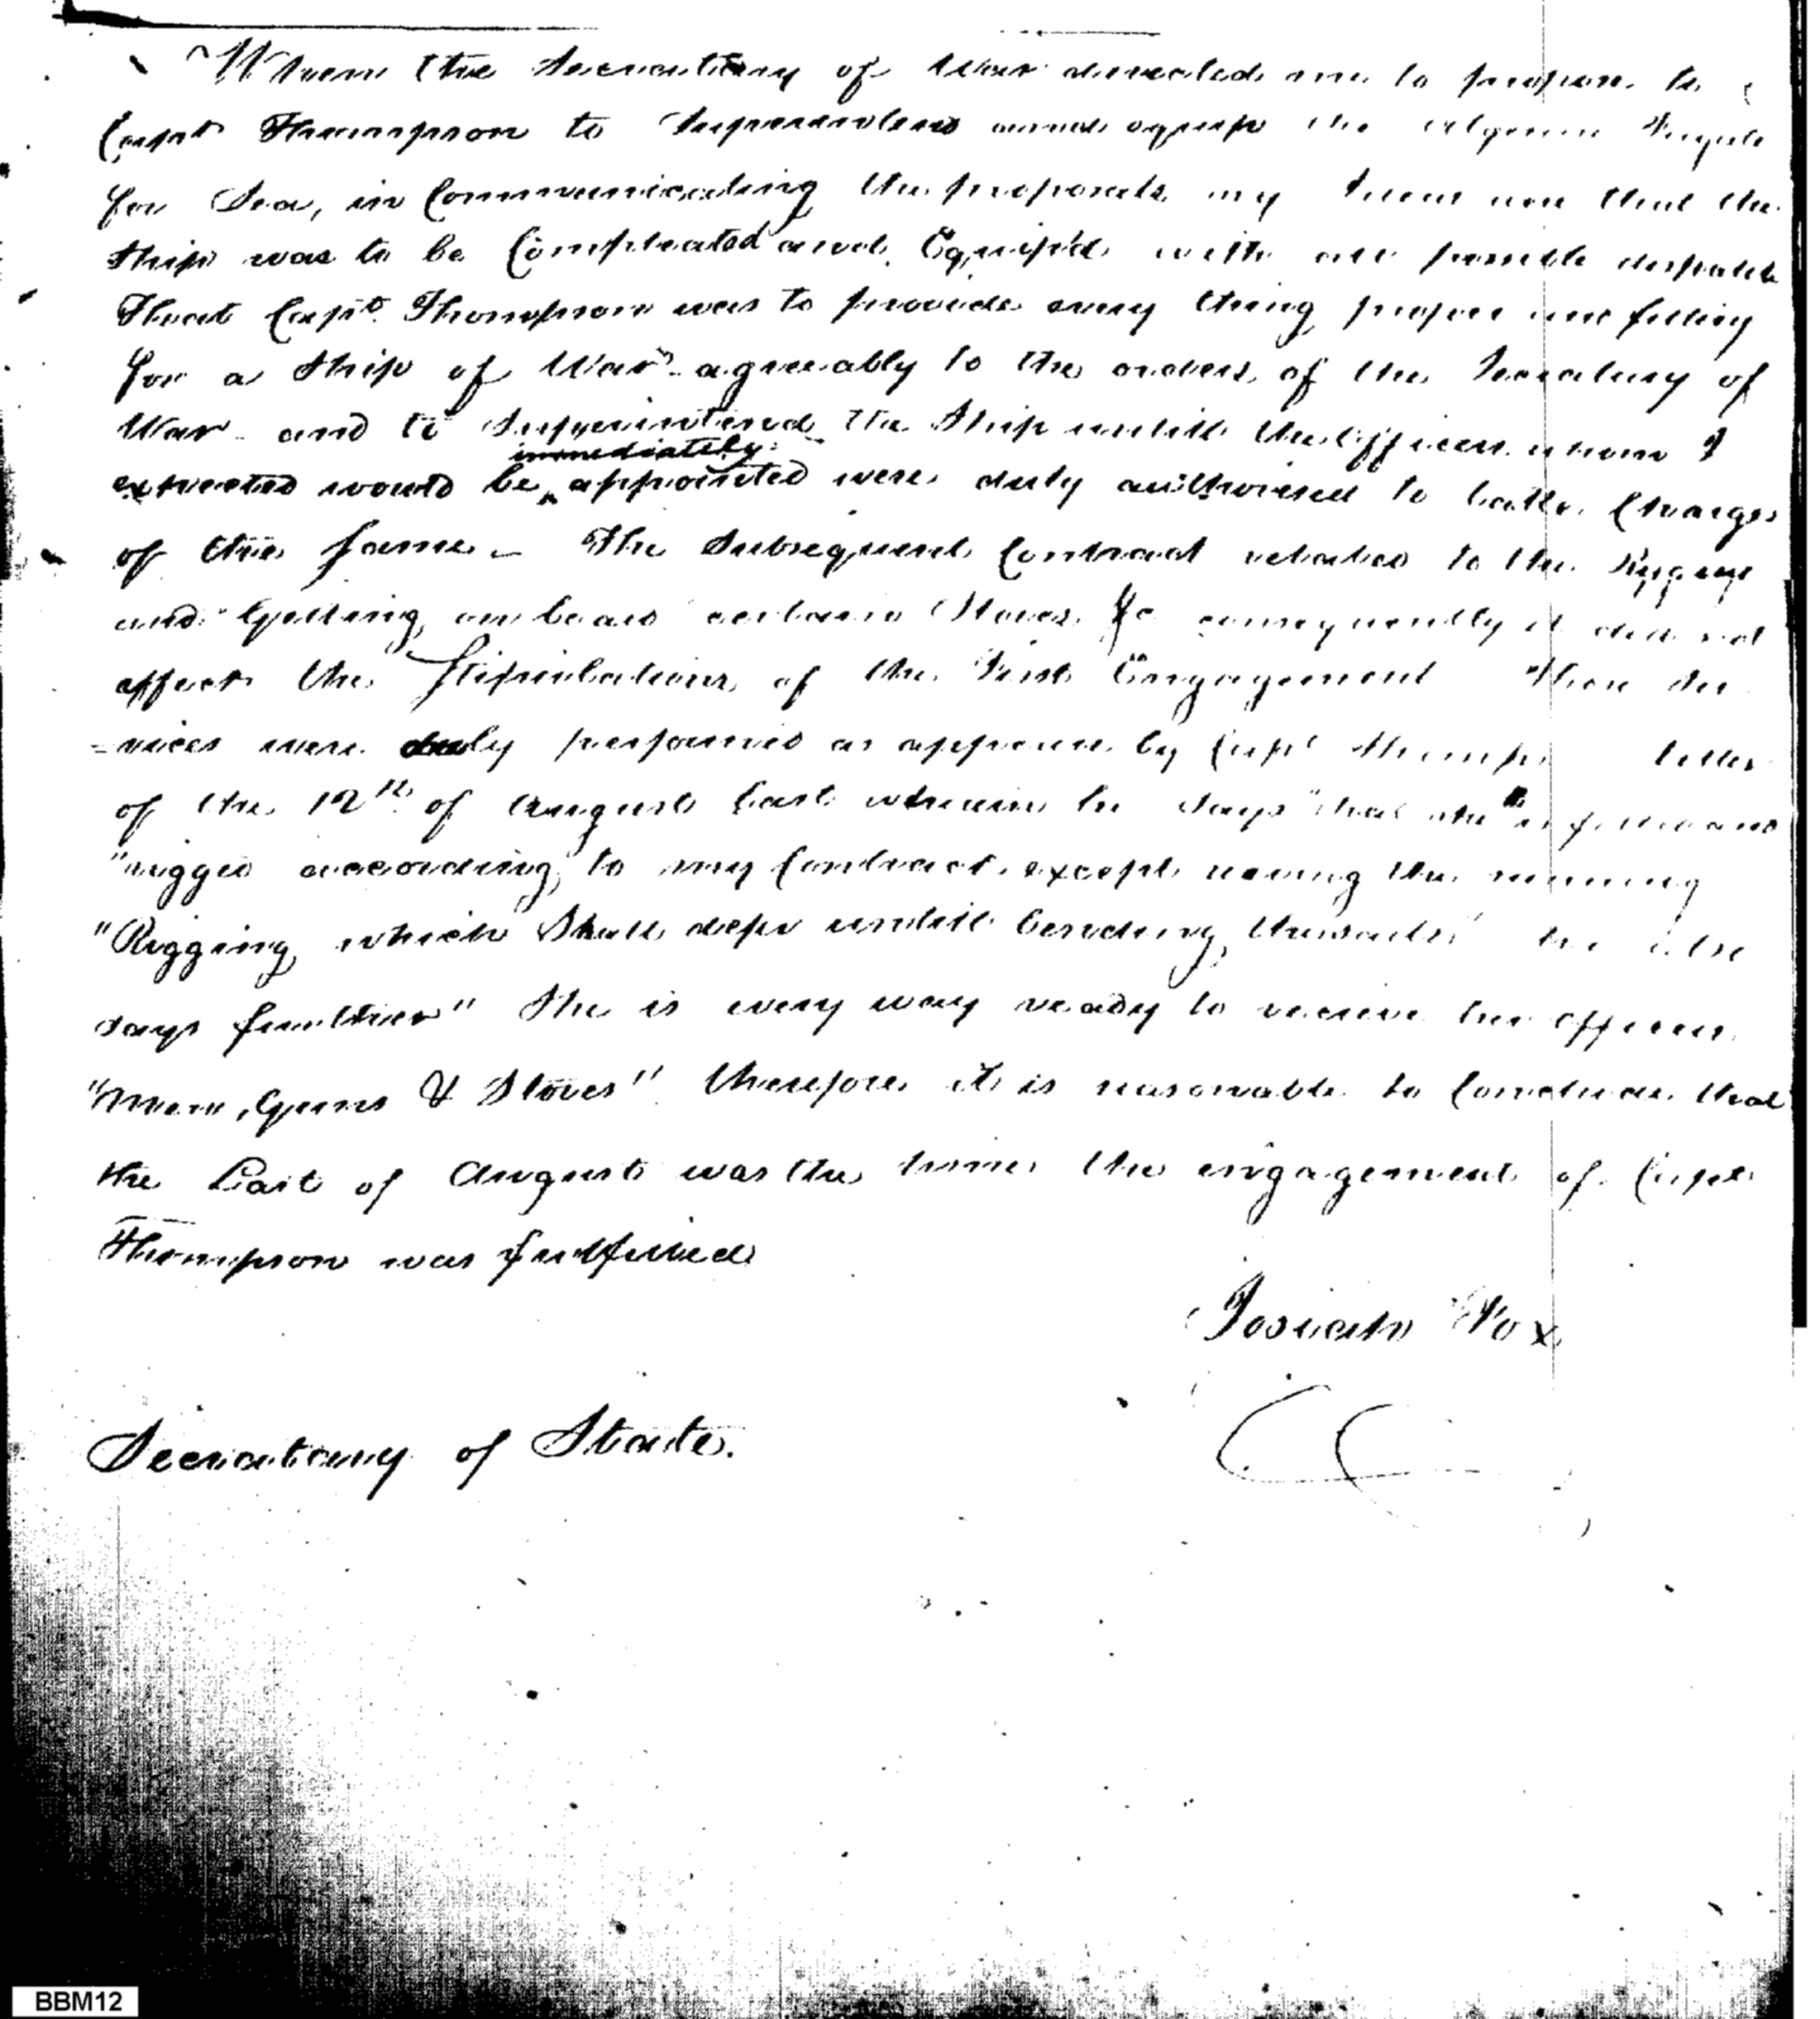 When the Secratary of War directed me to propose to
Capt Thompson to Superintend and equip the Algerine Frigate
for Sea, in Communicating the proposals, my Ideas were that the
Ship was to be Compleated and Equip'd with all possible dispatch
That Capt. Thompson was to provide every thing proper and fitting
for a Ship of War agreeably to the orders of the Secratary of
War and to Superintend the Ship untill the Officers whom I
immediately
expected would be appointed were duly authorised to take Charge
of the same - The Subsequent Contract relates to the Rigging
and Getting on board certain Stores &c consequently it did not
affect the Stipulations of the First Engagement These Ser
=vices were duly performed as appears by Capt Thomp letter
of the 12th of August last wherein he says "that she is fitted and
"rigged according to my Contract except reeving the running
"Rigging which Shall defer untill bending the sails" he also
says further "She is every way ready to receive her officers
"Men, Guns & Stores" therefore it is reasonable to Conclude that
the Last of August was the time the engagement of Capt
Thompson was fulfilled
Josiah Fox
Secratary of State.
BBM12